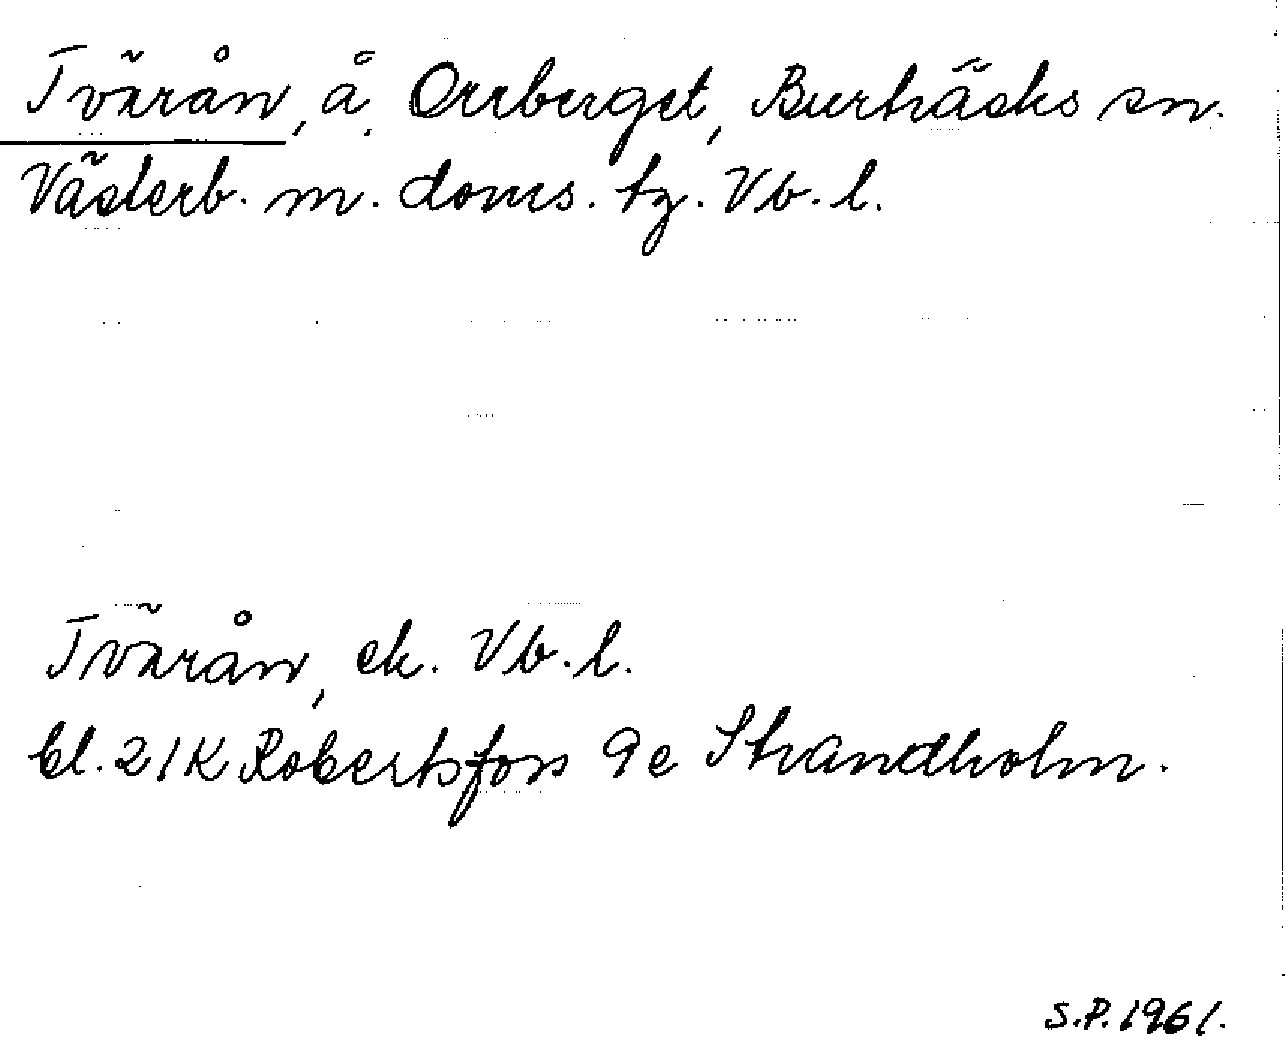 Tvärån, å, Orrberget, Burträsks sn.
Västerb. m. doms. tg. Vb. l.
Tvärån, ek. Vb. l.
bl. 21K Robertsfors 9e Strandholm.
S.P. 1961.